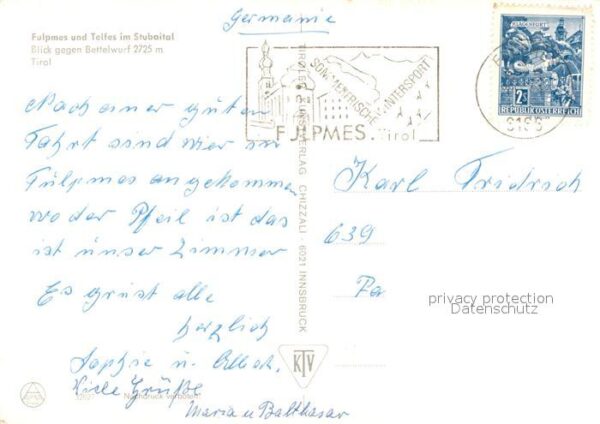 Germanie
Fulpmes und Telfes im Stubaital
Blick gegen Bettelwurf 2725 m
Tirol
SONNENFRISCHE WINTERSPORT
FULPMES. Tirol
KLAGENFURT
2S
REPUBLIK ÖSTERREICH
Nach einer guten
Fahrt sind wir in
Fülpmes angekommen
wo der Pfeil ist das
ist unser Zimmer
Es grüst alle
herzlich
Sophie u. Albert.
Viele Grüße
Maria u Balthasar
TIROLER KUNSTVERLAG CHIZZALI 6021 INNSBRUCK
KTV
Nachdruck verboten
Karl Fridrich
639
Pa
privacy protection
Datenschutz